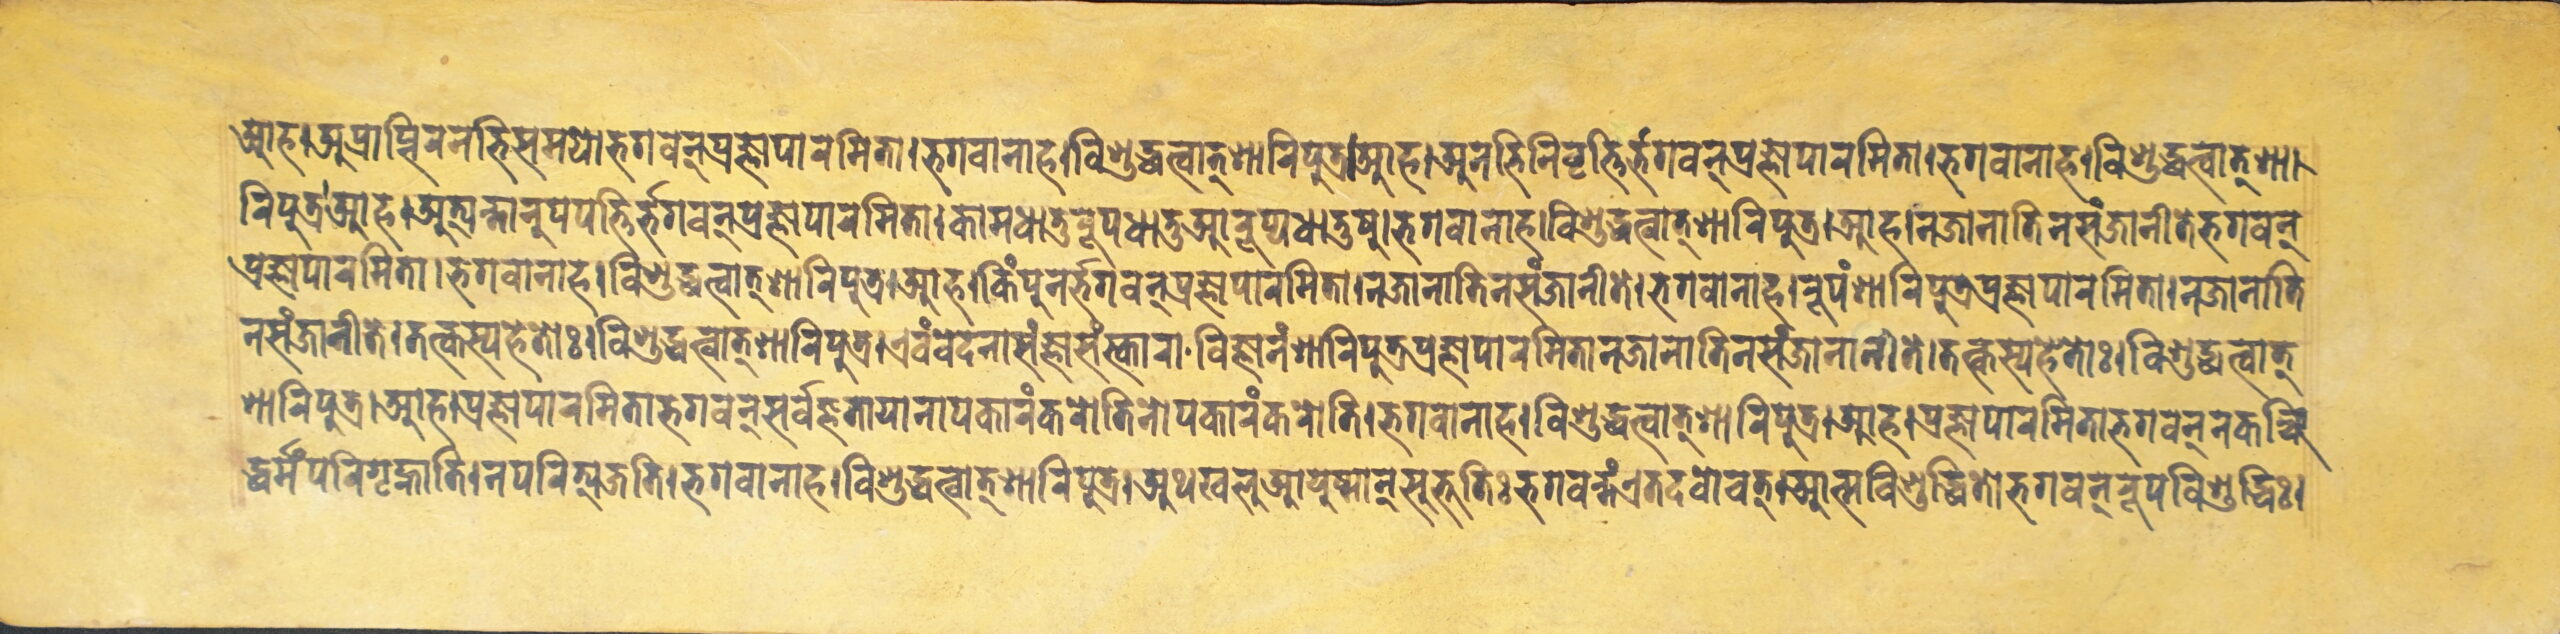 आह।अप्राप्तिरनभिसमयो।भगवन्प्रज्ञापारमिता।भगवानाह।विशुद्धत्वात्शारिपुत्र।आह।अनभिनिवृत्तिर्भगवन्प्रज्ञापारमिता।भगवानाह।विशुद्धत्वात्शा।
रिपुत्र।आह।अत्यन्तानुपपत्तिर्भगवन्प्रज्ञापारमिता।कामधातुरूपधातुआरूप्यधातुषु।भगवानाह।विशुद्धत्वात्शारिपुत्र।आह।नजानातिनसंजानीतेभगवन्
प्रज्ञापारमिता।भगवानाह।विशुद्धत्वात्शारिपुत्र।आह।किंपुनर्भगवन्प्रज्ञापारमिता।नजानातिनसंजानीते।भगवानाह।रूपंशारिपुत्रप्रज्ञापारमिता।नजानाति
नसंजानीते।तत्कस्यहेतोः।विशुद्धत्वात्शारिपुत्र।एवंवेदनासंज्ञासंस्कारा.विज्ञानंशारिपुत्रप्रज्ञापारमितानजानातिनसंजानानीते।तत्कस्यहेतोः।विशुद्धत्वात्
शारिपुत्र।आह।प्रज्ञापारमिताभगवन्सर्वज्ञतायानापकारंकरोतिनोपकारंकरोति।भगवानाह।विशुद्धत्वात्शारिपुत्र।आह।प्रज्ञापारमिताभगवन्नकञ्चि
द्धर्मंपरिगृह्णाति।नपरित्यजति।भगवानाह।विशुद्धत्वात्शारिपुत्र।अथखलुआयुष्मान्सुभूतिःभगवन्तंएतदवोचत्।आत्मविशुद्धितोभगवन्रूपविशुद्धिः।